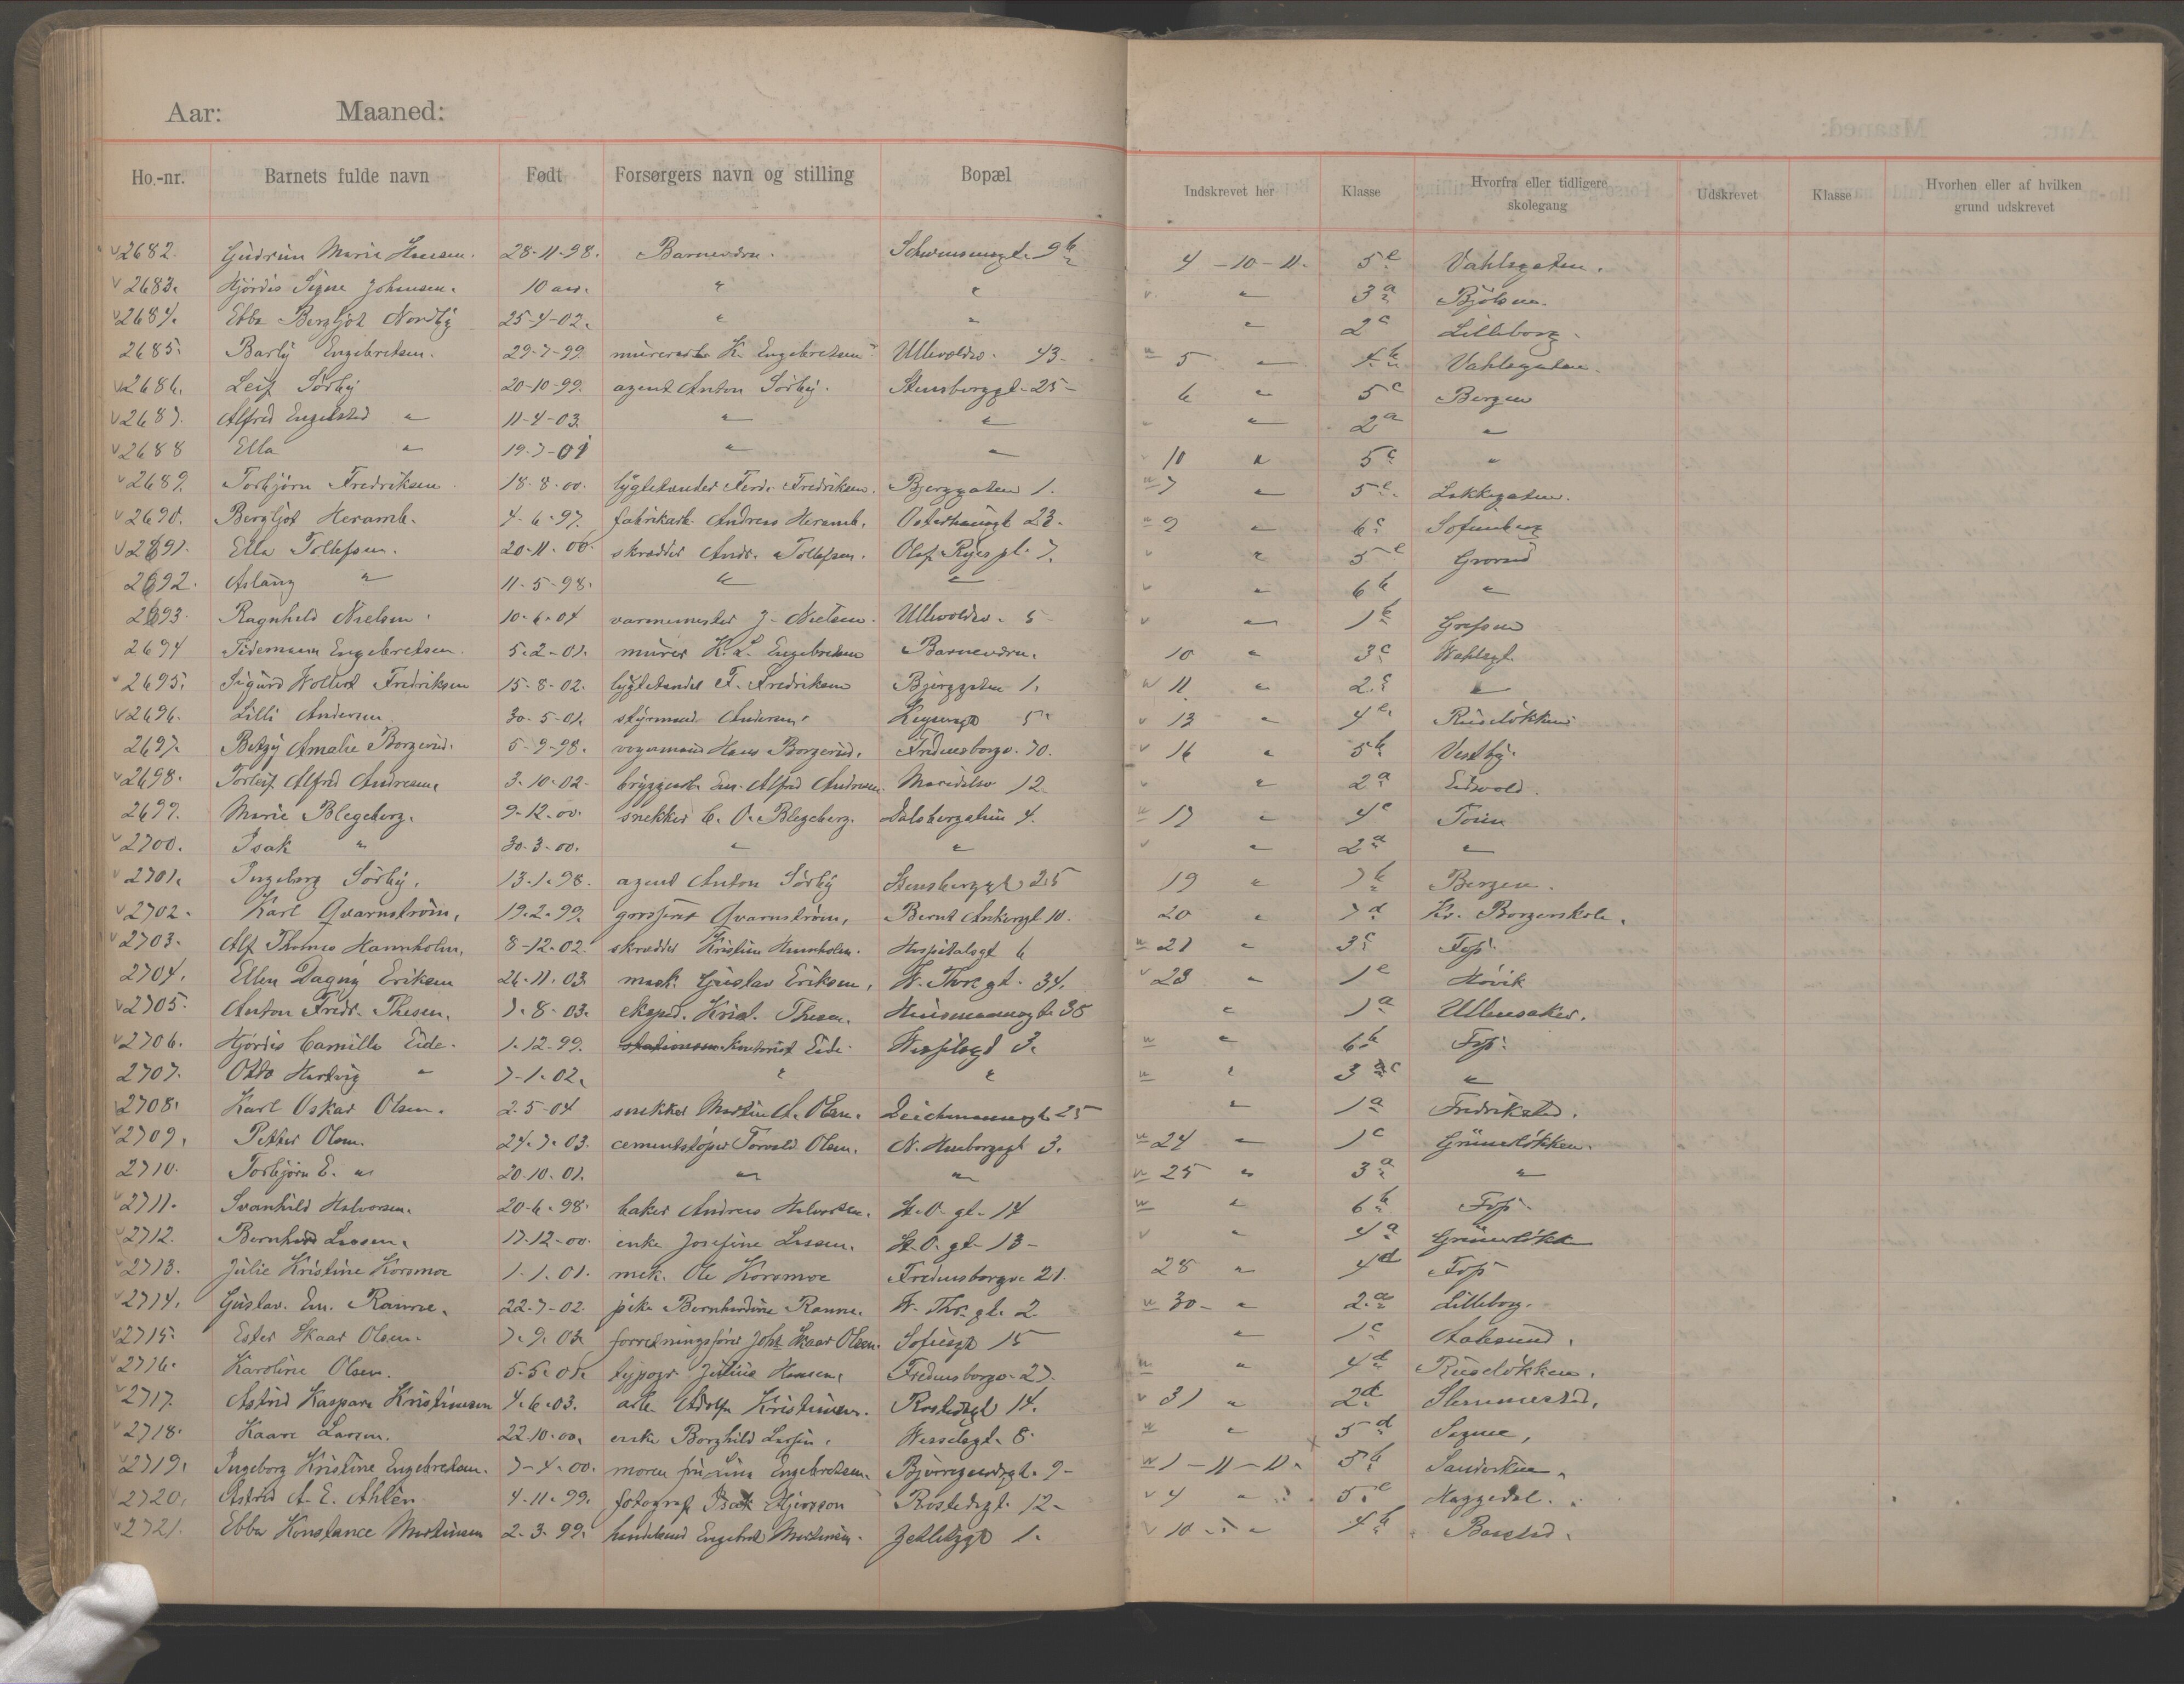 Aar: Maaned:
Ho.-nr. Barnets fulde navn Født Forsørgers navn og stilling Bopæl Indskrevet her Klasse Hvorfra eller tidligere skolegang Udskrevet Klasse Hvorhen eller af hvilken grund udskrevet
2682. Gudrun Marie Hansen. 28-11-98. Barnevdrn. 9b 4-10-11. 5e Vahlsgaten.
2683. Hjördis Signe Johnsen. 10 aar. " " " 3a Bjölsen.
2684. Ebba Bergljot Nordby 25-4-02. " " " 2c Lilleborg.
2685. Barly Engebretsen. 29-7-99. murerarb. K. Engebretsen Ullevoldsv. 43. 5 " 4b Vahlsgaten.
2686. Leif Sörby 20-10-99. agent Anton Sörby. Stensberggt. 25 6 " 5c Bergen
2687. Alfred Engelsted " 11-4-03. " " " 2a "
2688 Ella " 19-7-01 " " 10 " 5c "
2689. Torbjörn Fredriksen. 18-8-00. lygtetender Ferd. Fredriksen. Bjerggaten 1. 7 " 5e. Lakkegaten.
2690. Bergljot Heramb. 4-6-97. fabrikarb. Andreas Heramb. Osterhausgt 23. 9 " 6c Sofienberg
2691. Ella Tollefsen. 20-11-00. skrædder Andr. Tollefsen. Olaf Ryes pl. 7. " 5e Grorud
2692. Aslaug " 11-5-98. " " " 6b "
2693. Ragnhild Nielsen. 10-6-04 varmemester J. Nielsen. Ullevoldsv. 5 " 1b Grefsen
2694 Tidemann Engebretsen. 5-2-01. murer K. L. Engebretsen Barnevdrn. 10 " 3c Wahlsgt.
2695. Sigurd Wollert Fredriksen 15-8-02. lygtetender F. Fredriksen Bjerggaten 1. 11 " 2c "
2696. Lilli Andersen 30-5-01. styrmand Andersen. Keysersgt 5. 13 " 4e. Ruselökken
2697. Betzy Amalie Borgerud. 5-9-98. vognmand Hans Borgerud. Fredensborgv. 70. 16 " 5b Vestby.
2698. Torleif Alfred Andresen. 3-10-02. bryggearb. Em. Alfred Andresen. Maridalsv 12. " 2a Eidsvold.
2699. Marie Blegeberg. 9-12-00. snekker C. O. Blegeberg. Dalsbergstien 4. 17 " 4c Töien
2700. Isak " 30-3-00. " " " 2a "
2701. Ingeborg Sörby. 13-1-98. agent Anton Sörby Stensberggt 25 19 " 7b Bergen.
2702. Karl Qvarnström. 19-2-99. grosserer Qvarnström. Bernt Ankersgt 10. 20 " 7d Kr. Borgerskole.
2703. Alf Thomas Hannholm. 8-12-02. skrædder Kristine Hannholm. Hospitalsgt 6 21 " 3c Fos.
2704. Ellen Dagny Eriksen 26-11-03 mask. Gustav Eriksen. W. Thrs gt. 34. 23 " 1e Hövik
2705. Anton Fredr. Thesen. 7-8-03. eksped. Krist. Thesen. Huusmannsgt 38 " 1a Ullensaker.
2706. Hjördis Camilla Eide. 1-12-99. kontorist Eide. Wesselsgt 3. " 6b Fos.
2707. Otto Hartvig " 7-1-02. " " " 3c "
2708. Karl Oskar Olsen. 2-5-04 snekker Martin A. Olsen. Deichmannsgt 25 " 1a Fredrikstad.
2709. Petter Olsen. 24-7-03. cementstöper Torvald Olsen. N. Hauborgsgt 3. 24 " 1c Grünerlökken.
2710. Torbjörn E. " 20-10-01. " " 25 " 3a "
2711. Svanhild Halvorsen. 20-6-98. baker Andreas Halvorsen. St. O. gt. 14 " 6b Fos.
2712. Bernhard Larsen. 17-12-00. enke Josefine Larsen. St. O. gt. 13 " 4a Grünerlökk
2713. Julie Kristine Korsmoe 1-1-01. mek. Ole Korsmoe Fredensborgv 21. 28 " 4d Fos
2714. Gustav. Em. Ramme. 22-7-02. pike Bernhardine Ramme. W. Thr. gt. 2. 30 " 2a Lilleborg.
2715. Ester Skaar Olsen. 7-9-03 forretningsförer Joh. Skaar Olsen. Sofiesgt 15 " 1c Aalesund.
2716. Karoline Olsen. 5-5-01. typogr Julius Hansen. Fredensborgv. 27. " 4d Ruselökken.
2717. Astrid Kaspara Kristiansen 4-6-03. arb. Adolf Kristiansen. Rostedsgt 14. 31 " 2d Slemmestad.
2718. Kaare Larsen. 22-10-00. enke Borghild Larsen. Wesselsgt. 8. " 5d Sagene,
2719. Ingeborg Kristine Engebretsen. 7-4-00. moren fru Lina Engebretsen. Bjerregaardsgt. 9 1-11-11. 5b Sandviken.
2720. Astrid A. E. Ahlén 4-11-99. fotograf Isak Rostedsgt. 12. 4 " 5e Haggedal.
2721. Ebba Konstance Martinsen 2-3-99. handelsmd Engebret Martinsen. Zetlitzgt 1. 10 " 4b Baastad.